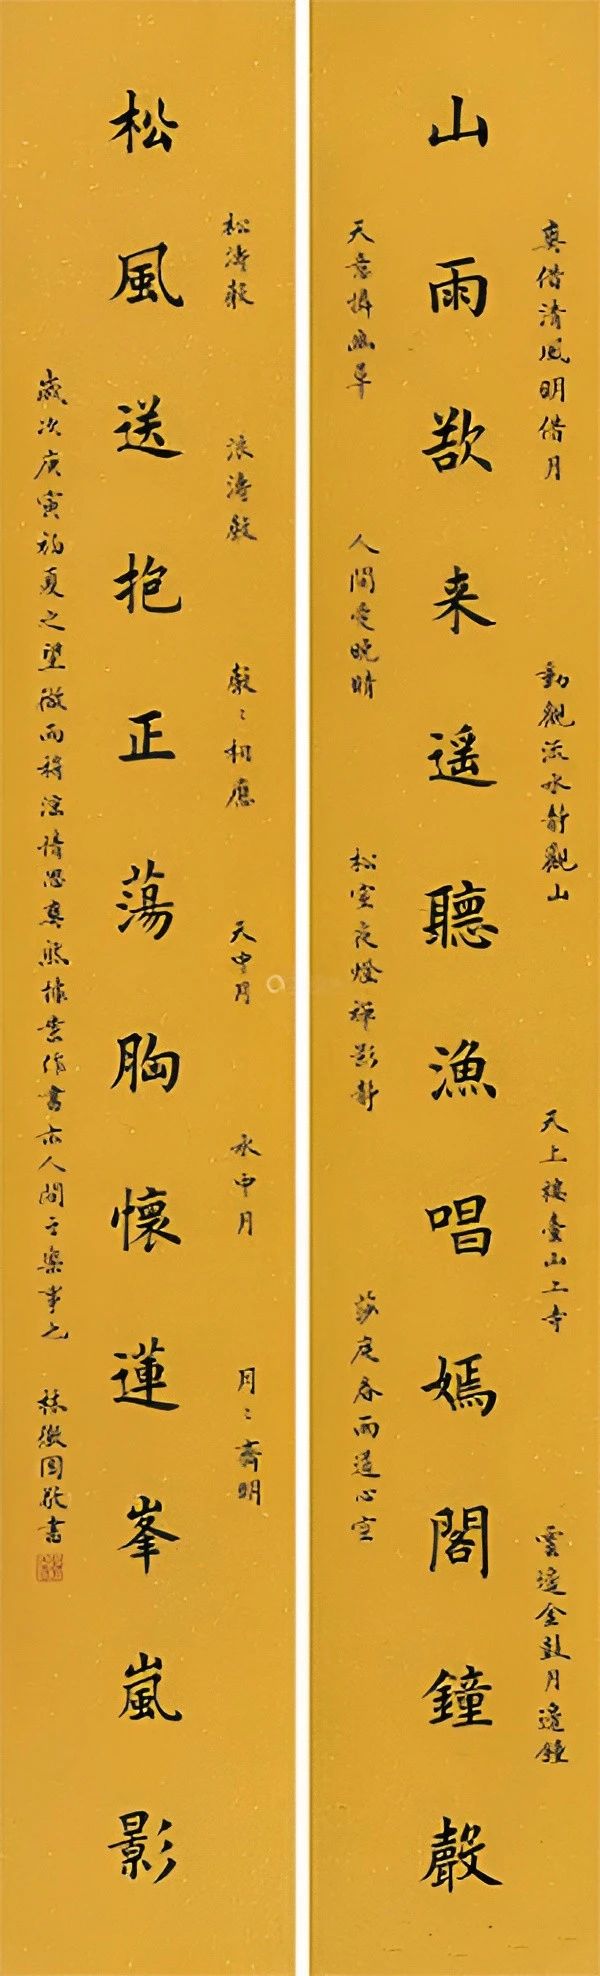 真借清風明借月
動觀流水靜觀山
天上樓臺山上寺
雲邊金鼓月邊鐘
山雨欲来遥聽漁唱嫣閣鐘聲
天意憐幽草
人間愛晚晴
松室夜燈禪影靜
莎庭春雨道心空
松濤聲
浪濤聲
聲〻相應
天中月
水中月
月〻齊明
松風送抱正蕩胸懷蓮峯嵐影
歲次庚寅初夏之望微雨稍涼情思爽然據案作書亦人間之樂事也
敬書